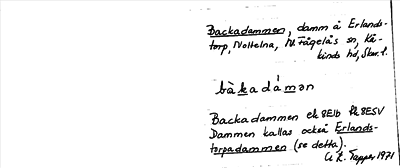 Backadammen, damm å Erlands-
torp, Noltelna, N. Fågelås sn, Kå-
kinds hd, Skar. l.
bàkadámən
Backadammen ek 8E1b fk 8ESV
Dammen kallas också Erlands-
torpadammen (se detta).
G. R. Tapper 1971